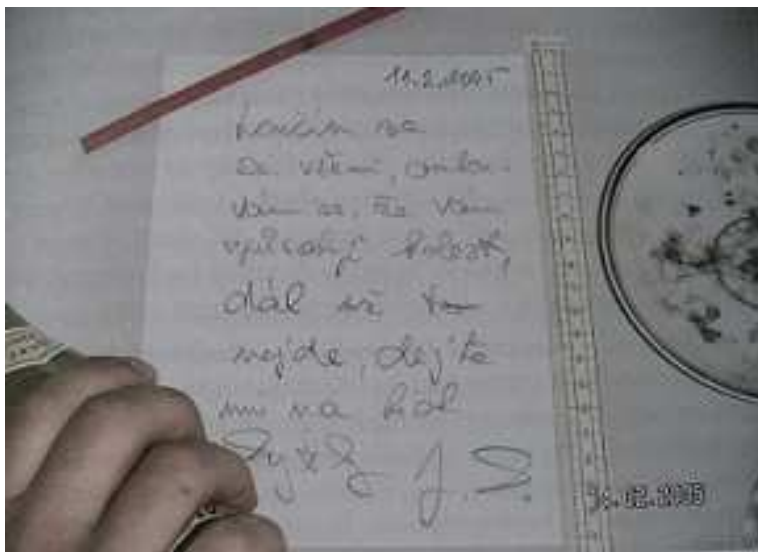 11.2.2005
Loučím se
se všemi, omlou-
vám se, že vám
způsobuji bolest,
dál už to
nejde, dejte
mi na hrob
J. S.
11.02.2005